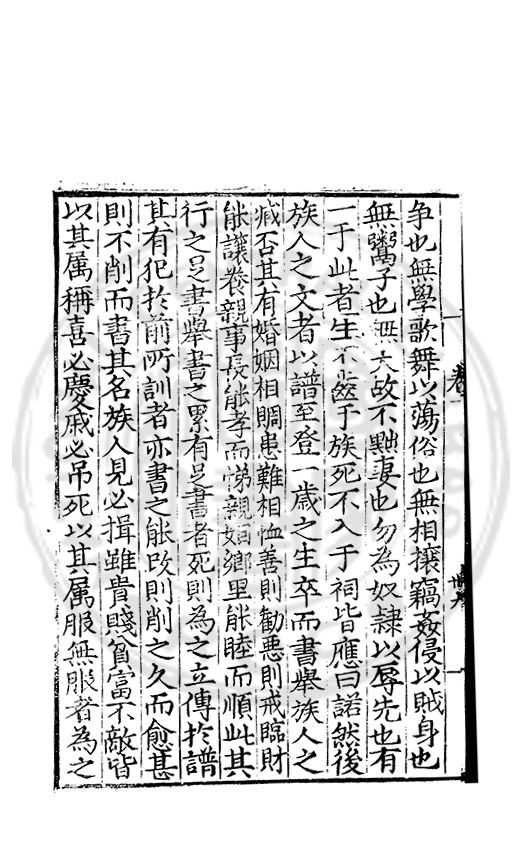 争也無學歌舞以蕩俗也無相攘竊姦侵以賊身也
無鬻子也無大故不黜妻也勿為奴隷以辱先也有
一于此者生不齒于族死不入于祠皆應曰諾然後
族人之文者以譜至登一歳之生卒而書舉族人之
臧否其有婚姻相賙患難相恤善則勸悪則戒臨財
能讓養親事長能孝而悌親姻鄉里能睦而順此其
行之足書舉書之累有足書者死則為之立傳於譜
其有犯於前所訓者亦書之能改則削之久而愈甚
則不削而書其名族人見必揖雖貴賤貧富不敵皆
以其属稱喜必慶戚必吊死以其属服無服者為之
卷一